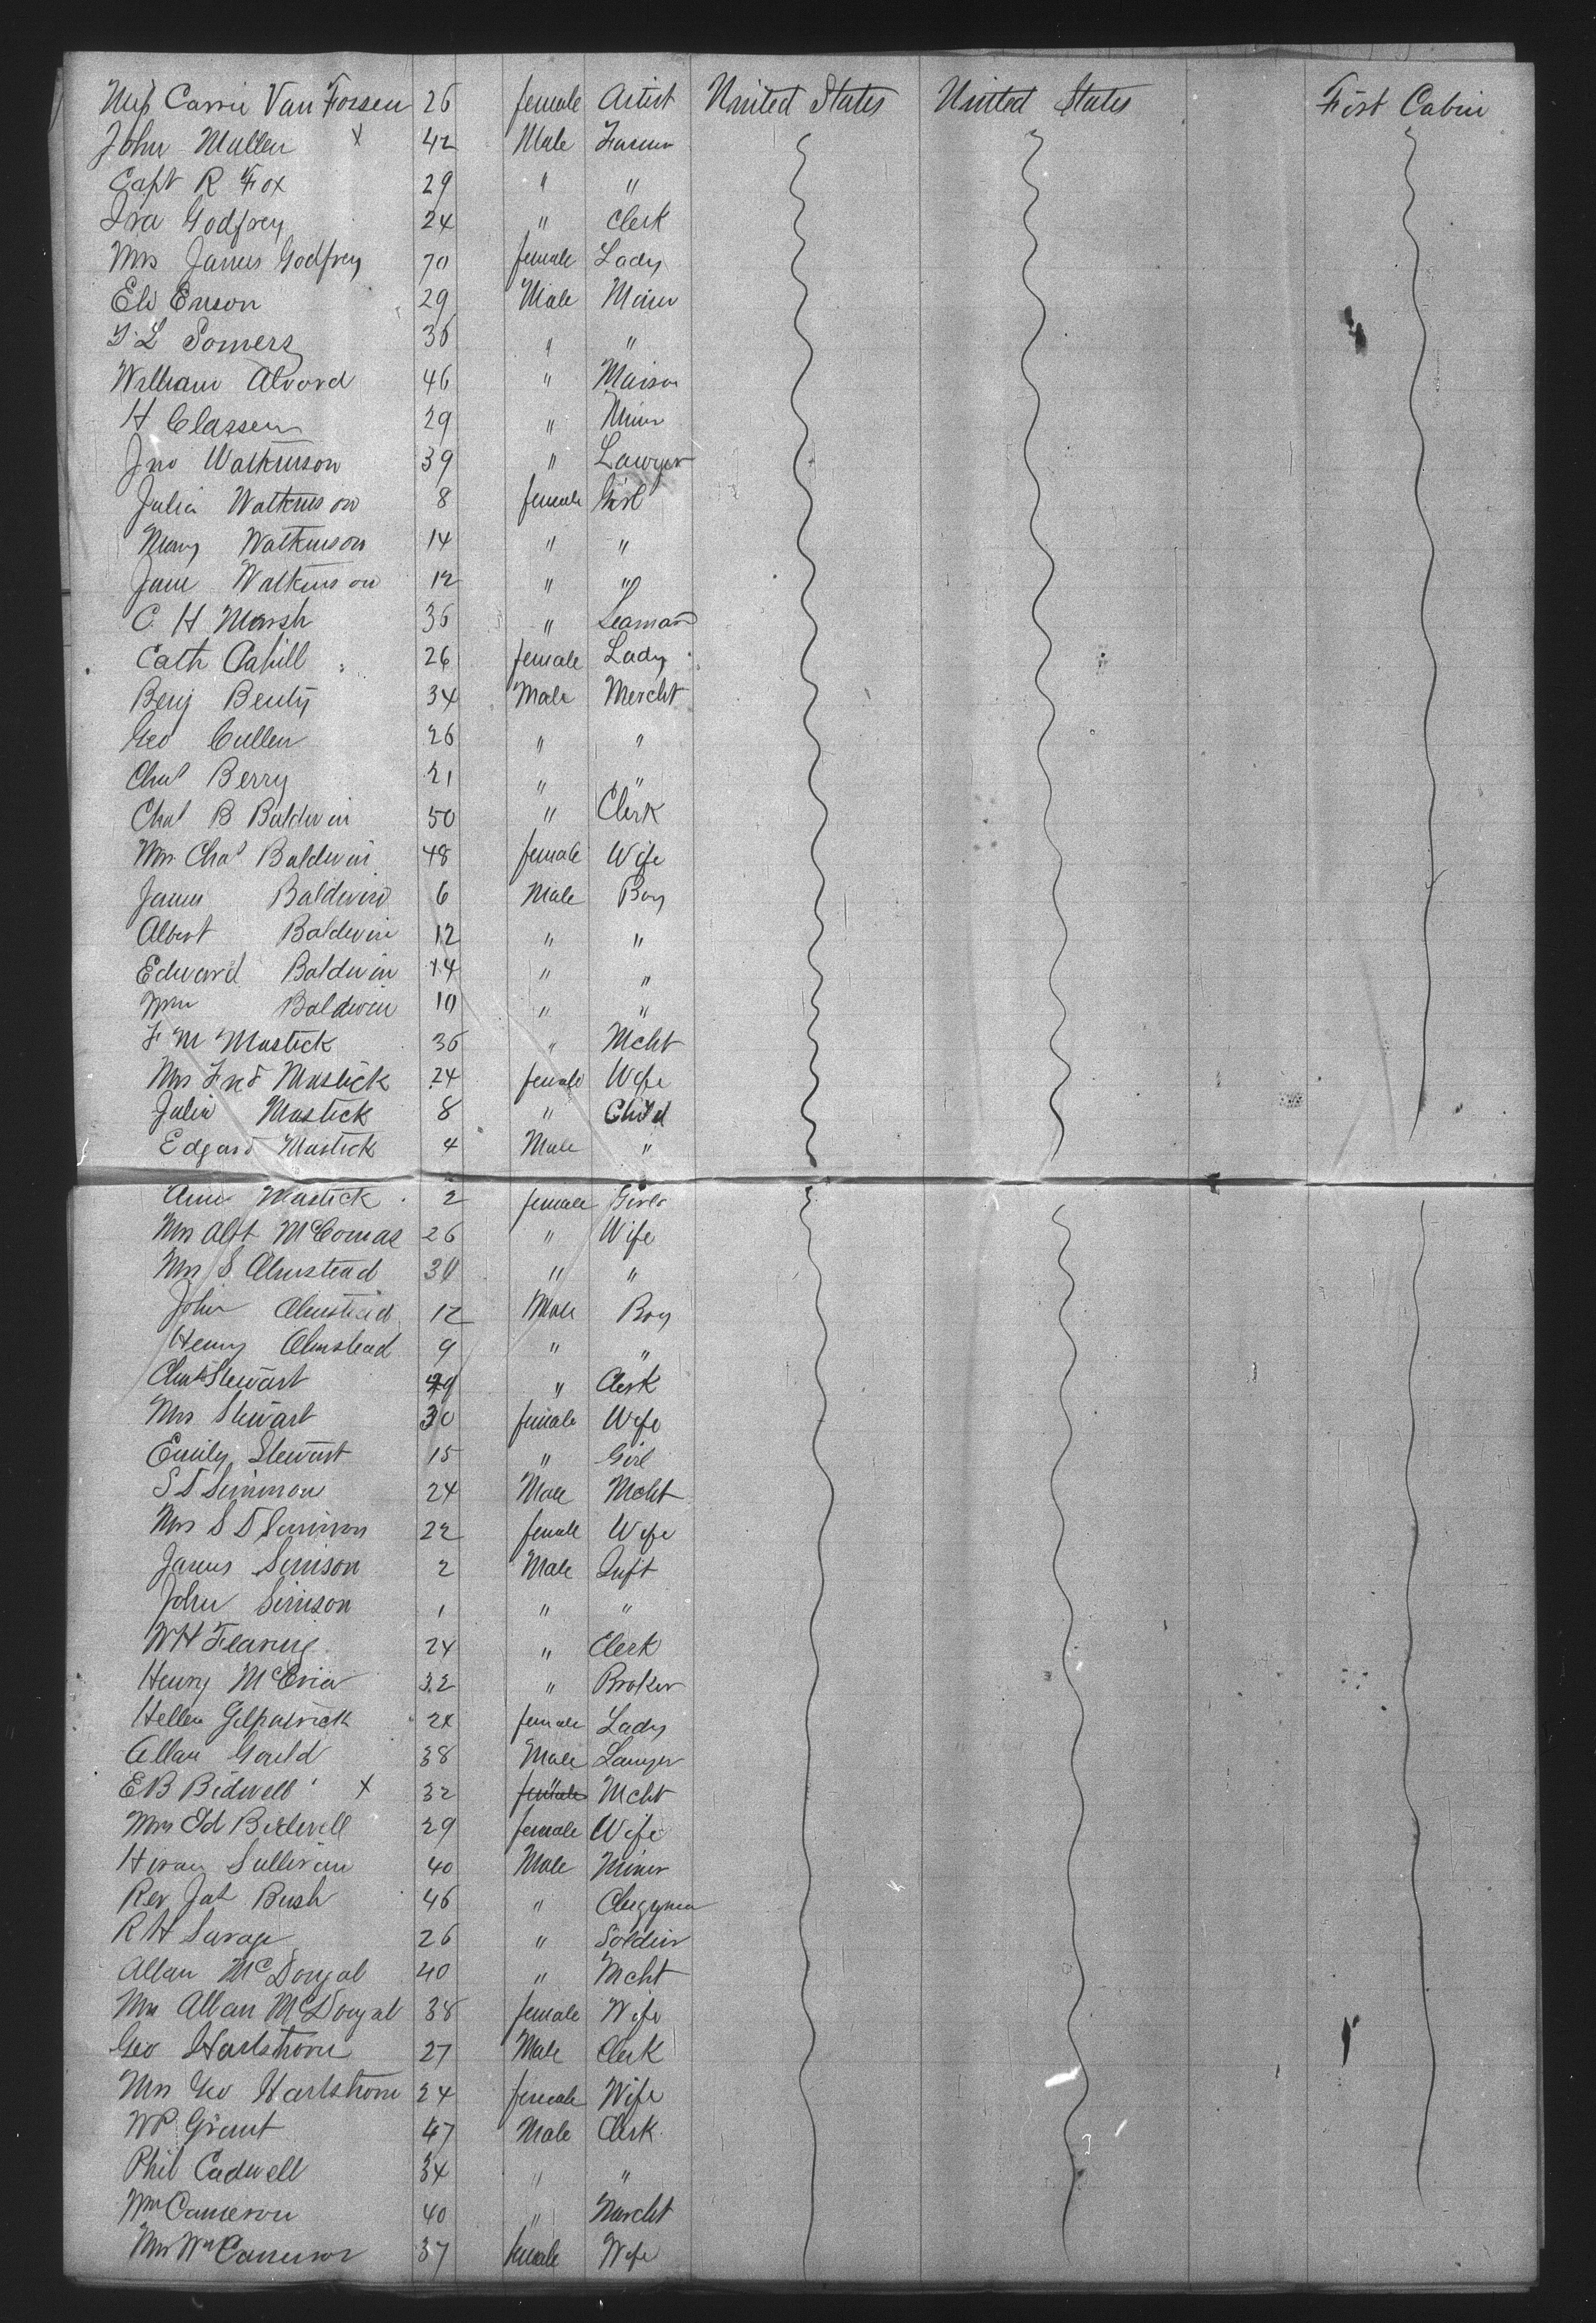 Miss Carrie Van Fossen 26 female Artist United States United States First Cabin
John Mullen x 42 Male Farmer
Capt R Fox 29 " "
Ira Godfrey 24 " Clerk
Mrs James Godfrey 70 female Lady
Eli Enson 29 Male Miner
L Somers 36 " "
William Alvord 46 " Maison
H Classen 29 " Miner
Jno Watkinson 39 " Lawyer
Julia Watkinson 8 female Girl
Mary Watkinson 14 " "
Jane Watkinson 12 " "
C. H Marsh 36 " Seaman
Cath Cahill 26 female Lady
Benj Benty 34 Male Mercht
Geo Cullen 26 " "
Chas Berry 21 " "
Chas B Baldwin 50 " Clerk
Mrs Chas Baldwin 48 female Wife
James Baldwin 6 Male Boy
Albert Baldwin 12 " "
Edward Baldwin 14 " "
Wm Baldwin 10 " "
F M Mastick 36 " Mcht
Mrs Mastick 24 female Wife
Julia Mastick 8 " Child
Edgard Mastick 4 Male "
Ann Mastick 2 female Girls
Mrs Albt McComas 26 " Wife
Mrs S. Olmstead 30 " "
John Olmstead 12 Male Boy
Henry Olmstead 9 " "
Chas Stewart " Clerk
Mrs Stewart 30 female Wife
Emily Stewart 15 " Girl
S T Simmon 24 Male Mcht
Mrs S T Simmon 22 female Wife
James Simison 2 Male Inft
John Simison 1 " "
W H Fearing 24 " Clerk
Henry McCrea 32 " Broker
Hellen Gilpatrick 24 female Lady
Allan Gould 38 Male Lawyer
E B Bidwell x 32 female " Mcht
Mrs Ed Bidwell 29 female Wife
Hiram Sullivan 40 Male Miner
Rev Jas Bush 46 " Clergyman
R H Savage 26 " Soldier
Allan McDougal 40 " Mcht
Mrs Allan McDougal 38 female Wife
Geo Hartshorn 27 Male Clerk
Mrs Geo Hartshorn 24 female Wife
W P Grant 47 Male Clerk
Phil Cadwell 34 " "
Wm Cameron 40 " Marcht
Mrs Wm Cameron 37 female Wife